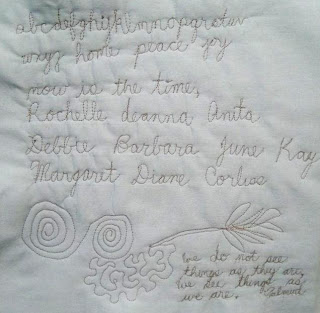 abcdefghijklmnopqrstuv
wxyz home peace joy
now is the time,
Rochelle deanna Anita
Debbie Barbara June Kay
Margaret Diane Corliss
We do not see
things as they are,
We see things as
we are.